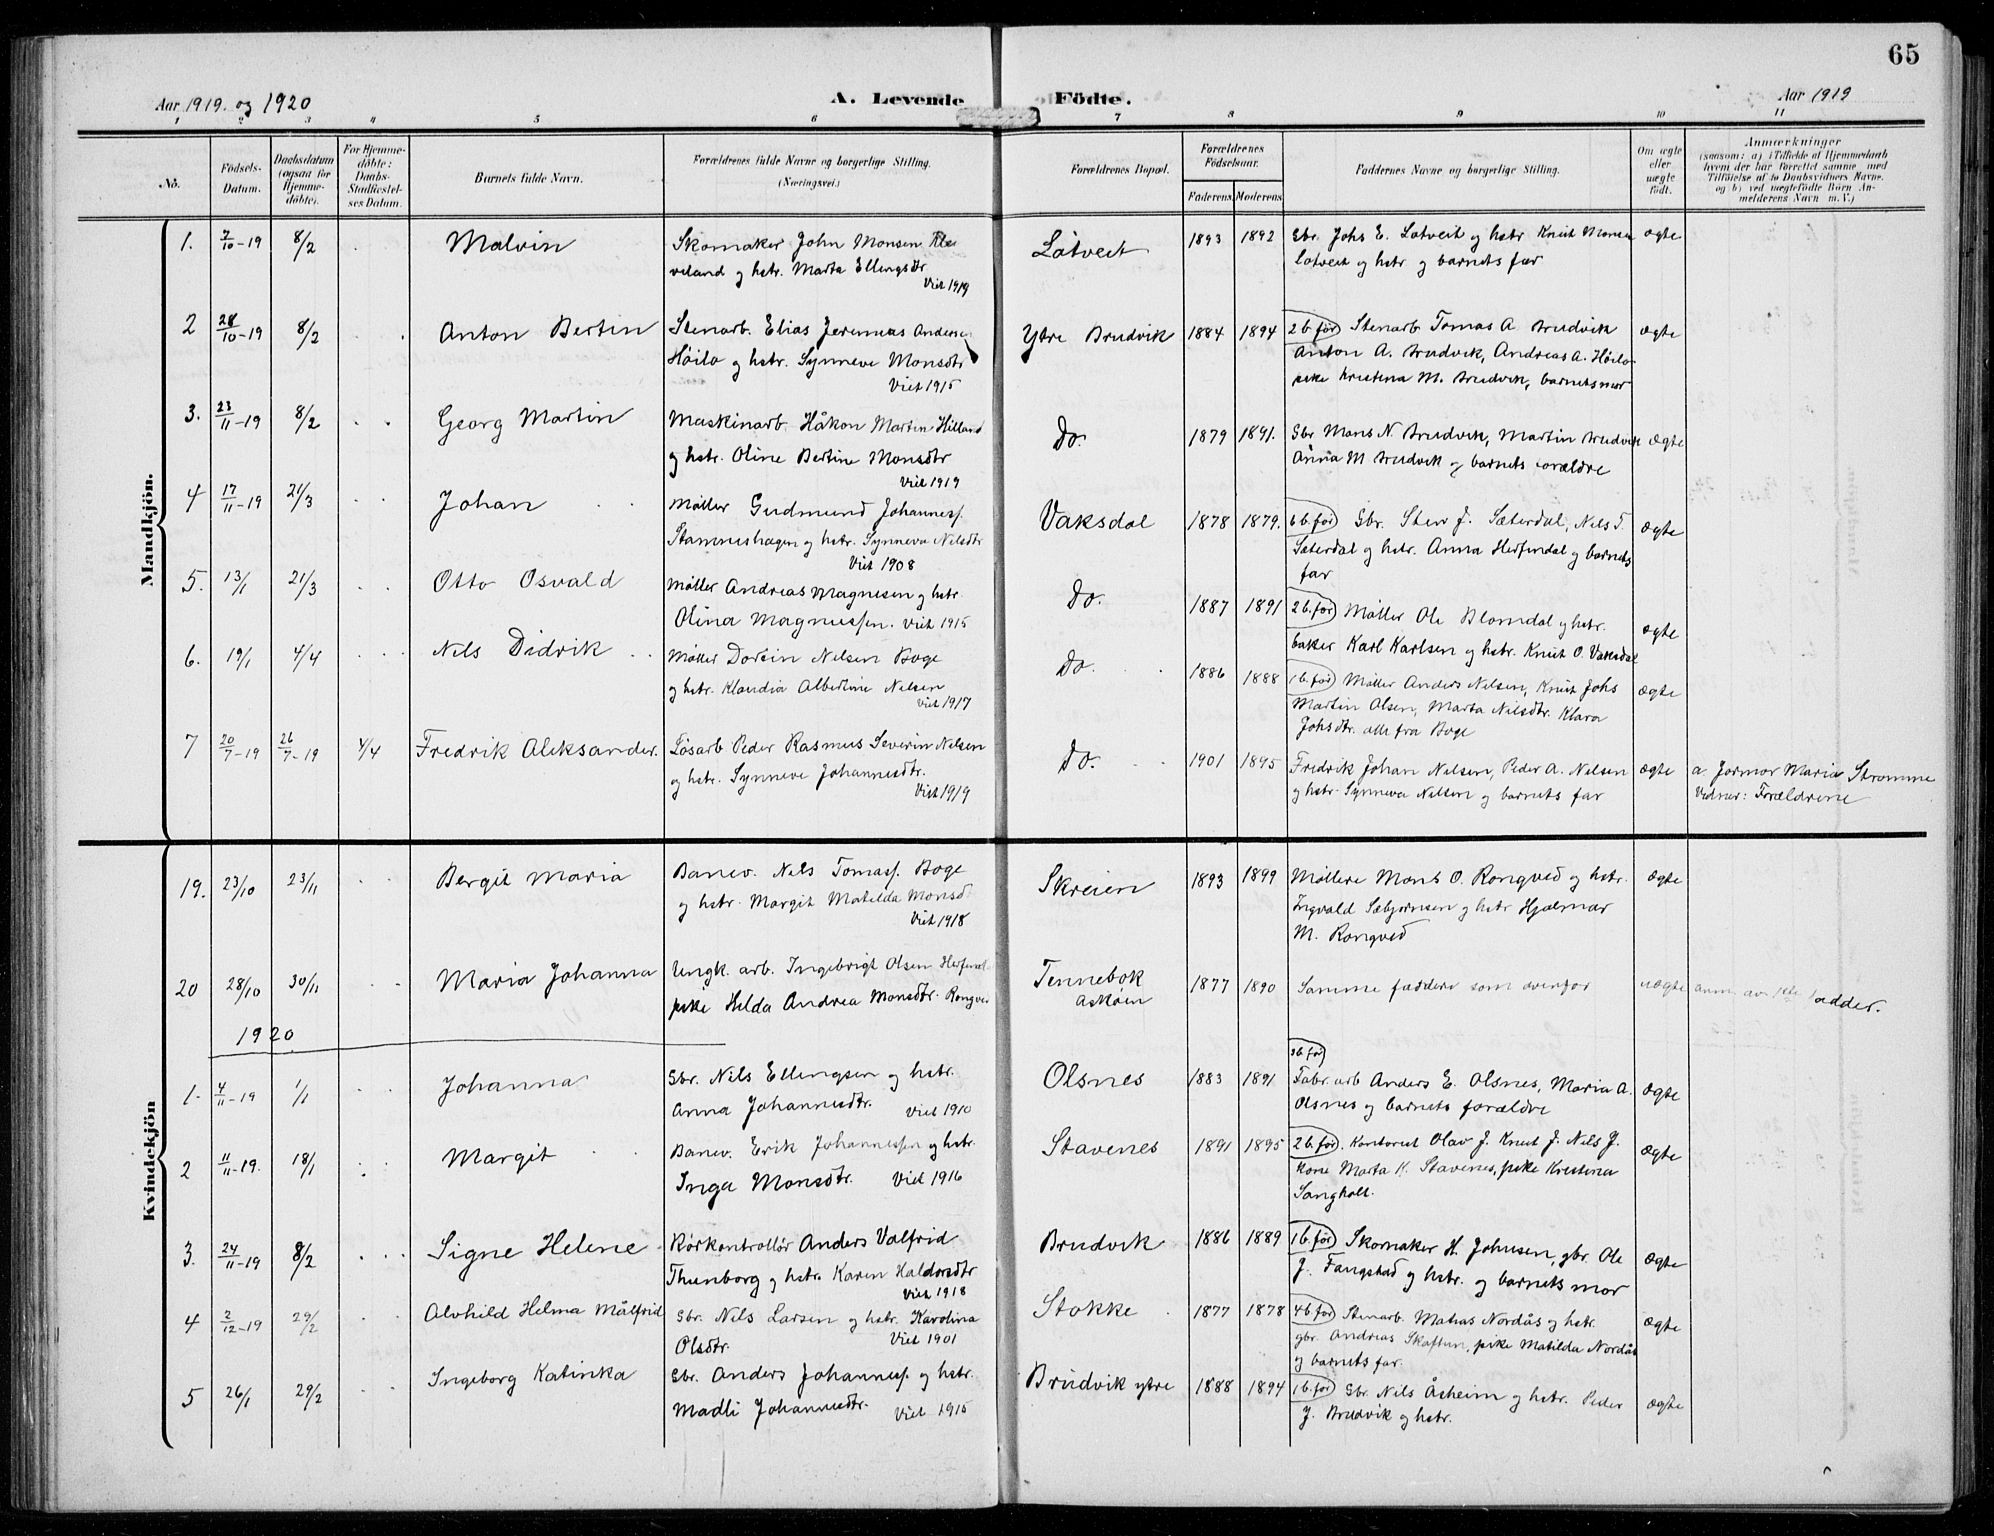 65
Aar 1919. og 1920
A. Levende
Födte.
Aar 1919
1 2 3 4 5 6 7 8 9 10 11
No.
Födsels-
Datum.
Daabsdatum
(ogsaa for
Hjemme-
döbte).
For Hjemme-
döbte:
Daabs-
Stadfæstel-
ses Datum.
Barnets fulde Navn.
Forældrenes fulde Navne og borgerlige Stilling.
(Næringsvei.)
Forældrenes Bopæl.
Forældrenes
Födselsaar.
Faderens Moderens
Faddernes Navne og borgerlige Stilling.
Om ægte
eller
uægte
födt.
Anmærkninger
(saasom: a) i Tilfælde af Hjemmedaab
hvem der har forrettet samme med
Tilföielse af to Daabsvidners Navne.
og b) ved uægtefödte Börn An-
melderens Navn m. V.)
Mandkjön.
1. 7/10-19 8/2 Malvin
Skomaker John Monsen Kle
veland og hstr. Marta Ellingsdtr
Viet 1919
Låtveit 1893 1892
Gbr. Johs E. Låtveit og hstr Knut Monsen
Låtveit og hstr og barnets far
ægte
2 28/10-19 8/2 Anton Bertin
Stenarb. Elias Jeremias Anderse
Höilo og hstr. Synneve Monsdtr
Viet 1915
Ytre Brudvik 1884 1894
2 b. för Stenarb Tomas A Brudvik
Anton A. Brudvik, Andreas A. Höilo
pike Kristina M. Brudvik, barnets mor
ægte
3. 23/11-19 8/2 Georg Martin
Maskinarb. Håkon Martin Hilland
og hstr. Oline Bertine Monsdtr
Viet 1919
Do. 1879 1891.
Gbr Mons N. Brudvik, Martin Brudvik
Anna M Brudvik og barnets forældre
ægte
4 17/11-19 21/3 Johan
Möller Gudmund Johannesf.
Stamneshagen og hstr. Synneva Nilsdtr
Viet 1908
Vaksdal 1878 1879.
6 b. för Gbr. Sten J. Sæterdal, Nils T.
Sæterdal og hstr. Anna Herfindal og barnets
far
ægte
5. 13/1 21/3 Otto Osvald
Möller Andreas Magnesen og hstr.
Olina Magnussen. Viet 1915
Do. 1887 1891
2 b. för Möller Ole Blomdal og hstr.
baker Karl Karlsen og hstr. Knut O. Vaksdal
ægte
6. 19/1 4/4 Nils Didrik
Möller Dortin Nilsen Boge
og hstr. Klaudia Albertine Nilsen
Viet 1917
Do. 1886 1888
1 b. för Möller Anders Nilsen, Knut Johs
Martin Olsen, Marta Nilsdtr. Klara
Johsdtr. alle fra Boge
ægte
7 20/7-19 26/7-19 4/4 Fredrik Aleksander.
Lösarb Peder Rasmus Severin Nilsen
og hstr. Synneve Johannesdtr.
Viet 1919
Do. 1901 1895
Fredrik Johan Nilsen, Peder A. Nilsen
og hstr. Synneva Nilsen og barnets far
ægte
a. Jormor Maria Strømme
Vidner: Forældrene
Kvindekjön
19. 23/10 23/11 Bergit Maria
Banev. Nils Tomasf. Boge
og hstr. Margit Matilda Monsd
Viet 1918
Skreien 1893 1899
Möllere Mons O. Rongved og hstr.
Ingvald Sæbjørnsen og hstr Hjalmar
M. Rongved
ægte
20 28/10 30/11 Maria Johanna
Ungk. arb. Ingebrigt Olsen Herfindal
pike Hilda Andrea Monsdtr. Rongved
Tennebøk
Askøen
1877 1890
Samme faddere som ovenfor
uægte
anm. av 1ste fadder.
1920
1. 4/11-19 1/1 Johanna
Gbr. Nils Ellingsen og hstr.
Anna Johannesdtr. Viet 1910
Olsnes 1883 1891
3 b. för
Fabr. arb Anders E. Olsnes, Maria A.
Olsnes og barnets forældre
ægte
2 11/11-19. 18/1 Margit
Banev. Erik Johannessen og hstr.
Inga Monsdtr. Viet 1916
Stavenes 1891 1895
2 b. för. Kontorist Olav J. Knut J. Nils J.
kone Marta K. Stavenes, pike Kristina
Sangholt.
ægte
3. 24/11-19 8/2 Signe Helene
Körkontrollör Anders Valfrid
Thunborg og hstr. Karen Haldorsdtr
Viet 1918
Brudvik 1886 1889
1 b. för Skomaker H. Johnsen, gbr. Ole
J. Fangstad og hstr. og barnets mor
ægte
4 2/12-19 29/2 Alvhild Helma Målfrid
Gbr. Nils Larsen og hstr. Karolina
Olsdtr. Viet 1901
Stokke 1877 1878
4 b. för Stenarb. Matias Nordås og hstr.
gbr. Andreas Skaftun, pike Matilda Nordås
og barnets far.
ægte
5 26/1 29/2 Ingeborg Katinka
Gbr. Anders Johannesf. og hstr.
Madli Johannesdtr. Viet 1915
Brudvik ytre 1888 1894
1 b. för Gbr. Nils Åsheim og hstr. Peder
J. Brudvik og hstr.
ægte